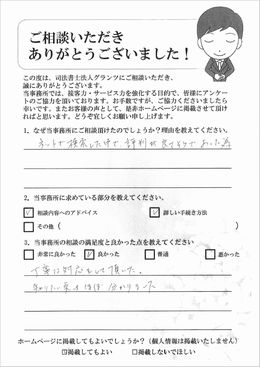 ご相談いただき
ありがとうございました！
この度は、司法書士法人グランツにご相談いただき、
誠にありがとうございます。
当事務所では、接客力・サービス力を強化する目的で、皆様にアンケー
トのご協力を頂いております。お手数ですが、ご協力くださいましたら
幸いです。またお客様の声として、是非ホームページに掲載させて頂け
ればと思います。どうぞ宜しくお願い申し上げます。
1. なぜ当事務所にご相談頂けたのでしょうか？理由を教えてください。
ネットで検索した中で評判が良さそうであった為
2. 当事務所に求めている部分を教えてください。
相談内容へのアドバイス 詳しい手続き方法
その他（ ）
3. 当事務所の相談の満足度と良かった点を教えてください
非常に良かった 良かった 普通 悪かった
丁寧に対応をして頂いた。
知りたい事はほぼ分かりました
ホームページに掲載してもよいでしょうか？（個人情報は掲載いたしません）
掲載してもよい 掲載しないでほしい